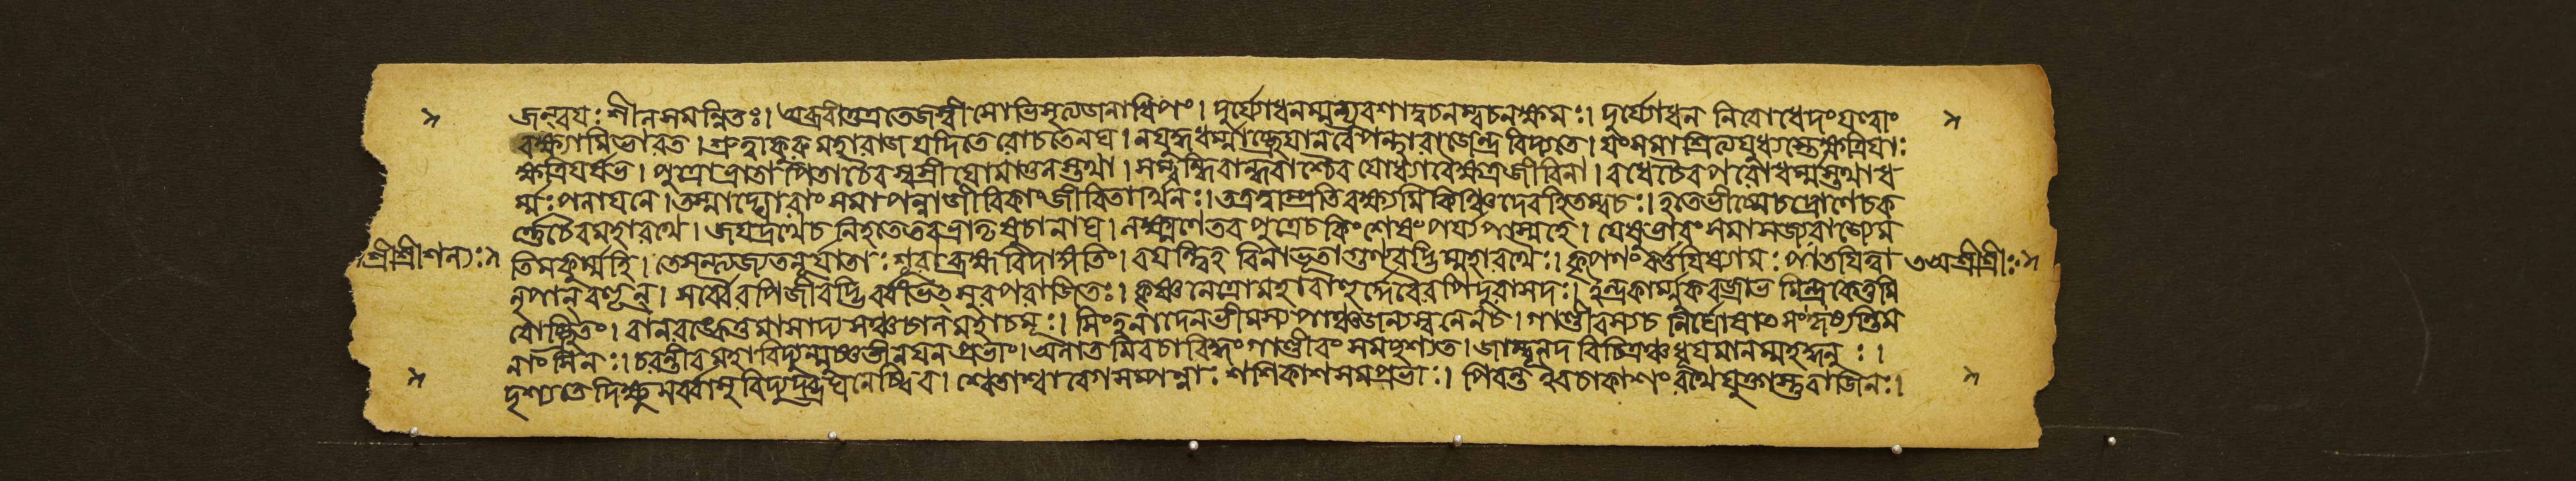 জনৃবযঃ শীলসমন্নিতঃ। অব্রবীত্তত্রতেজস্বী সোভিসৃত্যজনাধিপং। দুর্য্যোধনম্মন্যুবশাদ্বচনম্বচনক্ষমঃ। দুর্য্যোধন নিবোধেদং যত্ত্বাং
বক্ষ্যামিভারত। শ্রুত্বাকুরুমহারাজ যদিতে রোচতেনঘ। নযুদ্ধধর্ম্মাচ্ছ্রেযানবৈপন্থারাজেন্দ্র বিদ্যতে। যংসমাশ্রিত্যযুধ্যন্তেক্ষত্রিযাঃ
ক্ষত্রিযর্ষভ। পুত্রোভ্রাতা পিতাচৈবস্বস্রীযোমাতুলস্তথা। সম্বন্ধিবান্ধবাশ্চৈব যোধ্যাবৈক্ষত্রজীবিনা। বধেচৈবপরোধর্ম্মস্তথাধ
র্ম্মঃপলাযনে। তস্মাদ্ঘোরাং সমাপন্নাজীবিকাং জীবিতার্থিনঃ। তত্রত্বাম্প্রতিবক্ষ্যামি কিঞ্চিদেবহিতম্বচঃ। হতেভীষ্মেচদ্রোণেচক
র্ণ্ণেচৈবমহারথে। জযদ্রথেচ নিহতেতবভ্রাতৃষুচানঘ। লক্ষ্মণেতব পুত্রেচকিং শেষং পর্য্যুপাস্মহে। যেষুভারং সমাসজ্যরাজ্যেম
শ্রীশ্রীশল্যঃ
তিমকুর্ম্মহি। তেসন্ত্যজ্যতনূর্যাতাঃ শূরাব্রহ্মবিদাঙ্গতিং। বযন্ত্বিহ বিনাভূতাগুণবদ্ভির্ম্মহারথৈঃ। কৃপণং বর্ত্তযিষ্যামঃ পাতযিত্বা
৩অশ্রীশ্রীঃ
নৃপান্ বহূন্। সর্ব্বৈরপিজীবদ্ভির্বীভৎসুরপরাজিতঃ। কৃষ্ণনেত্রোমহাবাহুর্দ্দেবৈরপিদুরাসদঃ। ইন্দ্রকার্ম্মুকবজ্রাভ মিন্দ্রকেতুমি
বোচ্ছ্রিতং। বানরঙ্কেতুমাসাদ্য সঞ্চচালমহাচমূঃ। সিংহনাদেনভীমস্যপাঞ্চজন্যস্বনেনচ। গাণ্ডীবস্যচ নির্ঘোষাৎ সংহৃষ্যন্তিম
নাংসিনঃ। চরন্তীবমহাবিদ্যুন্মুষ্ণতীনযনপ্রভাং। অলাতমিবচাবিদ্ধং গাণ্ডীবং সমদৃশ্যত। জাম্বূনদ বিচিত্রঞ্চধূযমানম্মহদ্ধনুঃ।
দৃশ্যতেদিক্ষুসর্ব্বাসুবিদ্যুদভ্রঘনেষ্বিব। শ্বেতাশ্বাবেগসম্পন্নাঃ শশিকাশসমপ্রভাঃ। পিবন্ত ইবচাকাশং রথেযুক্তাস্তুবাজিনঃ।